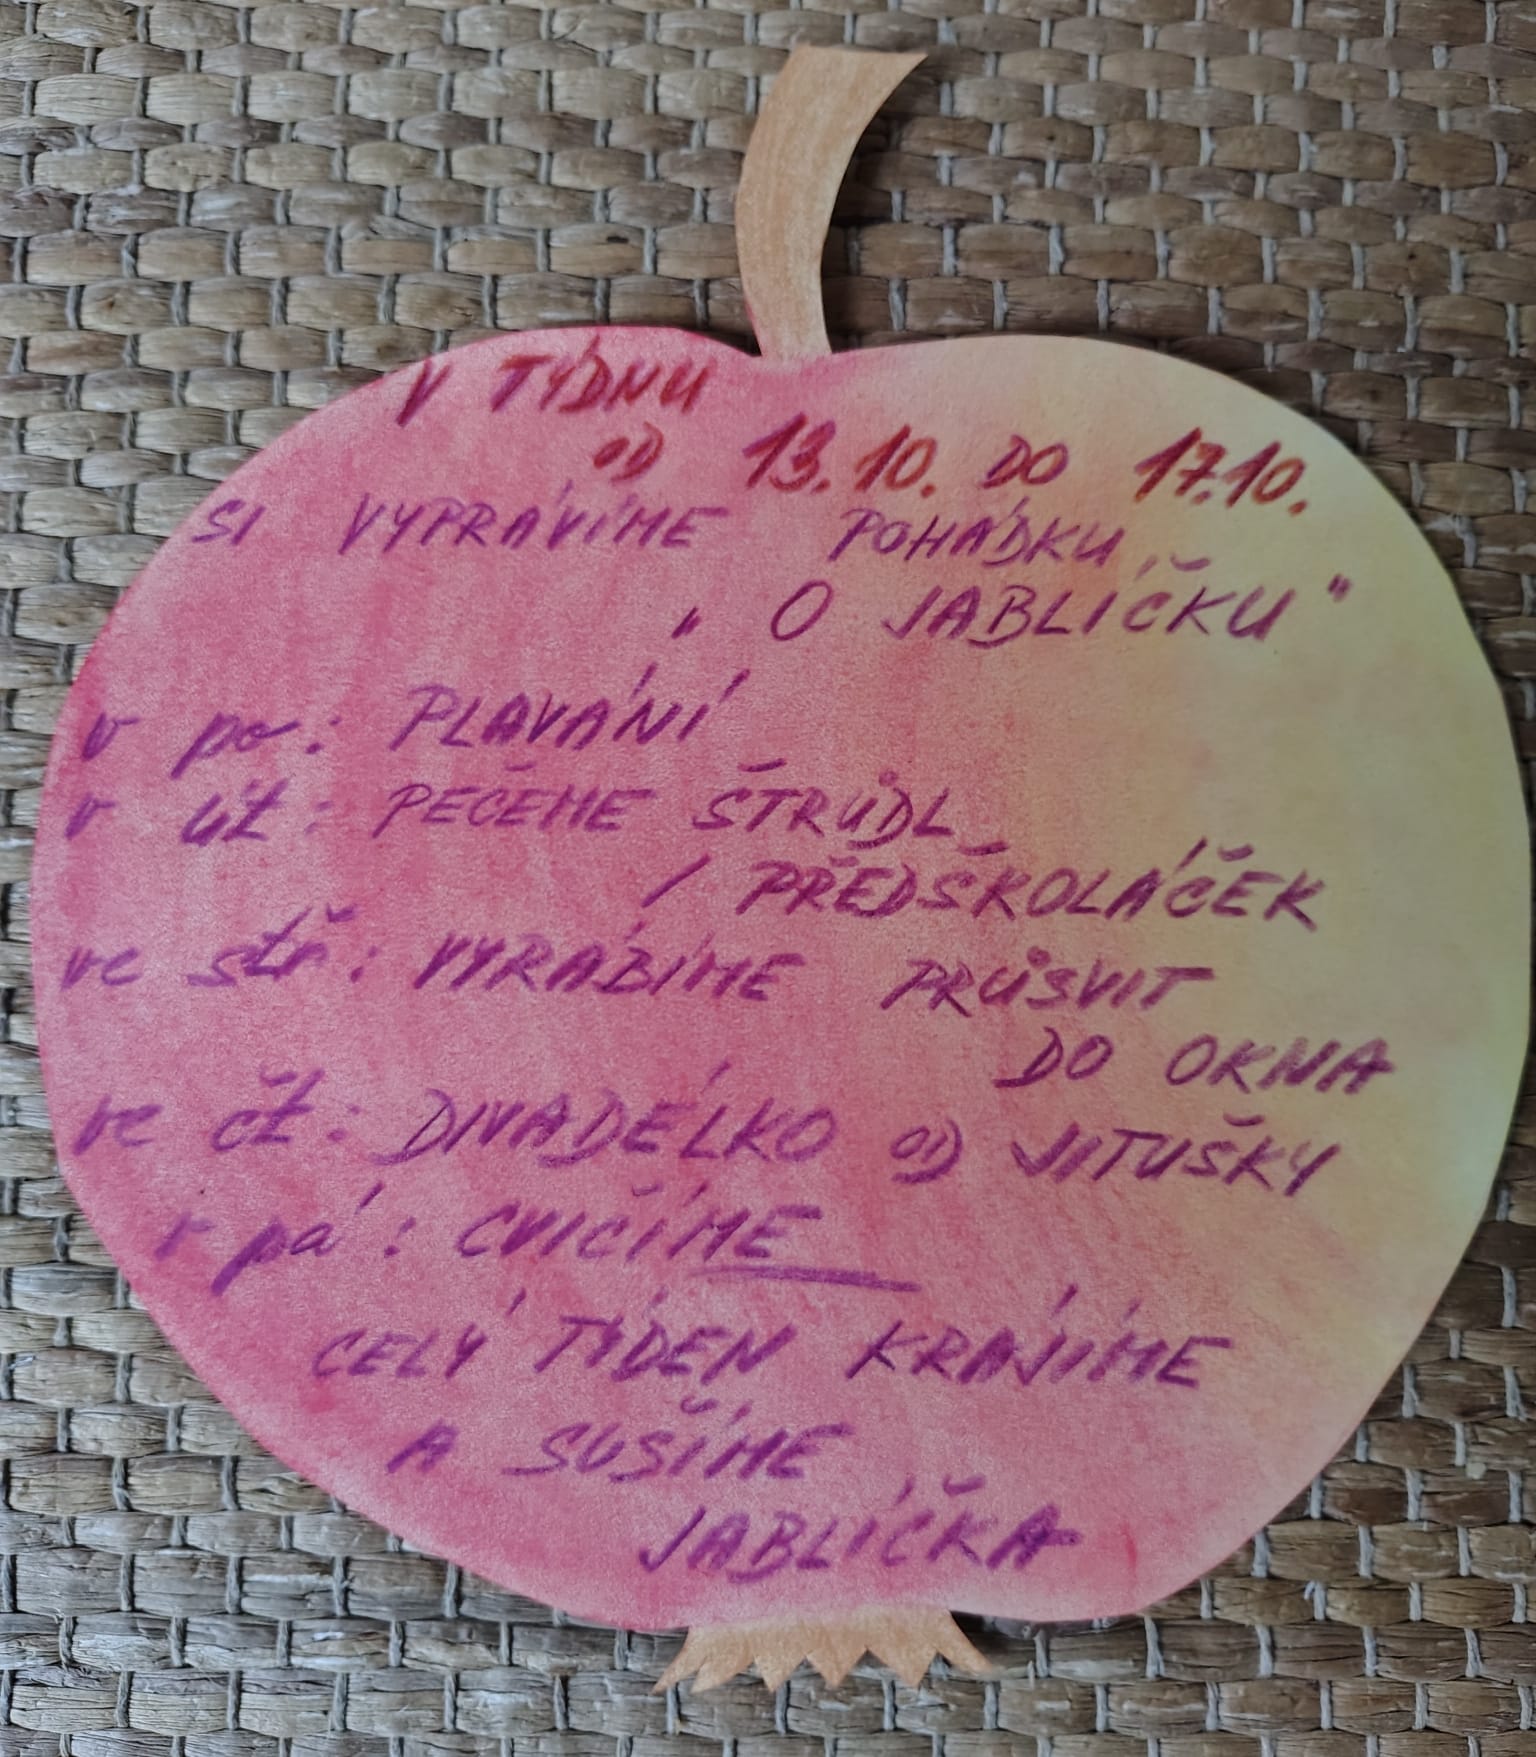 V TÝDNU
OD 13.10. DO 17.10.
SI VYPRÁVÍME POHÁDKU
„ O JABLÍČKU "
v po: PLAVÁNÍ
v út: PEČEME ŠTRŮDL
/ PŘEDŠKOLÁČEK
ve stř: VYRÁBÍME PRŮSVIT
DO OKNA
ve čt: DIVADÉLKO OD JITUŠKY
v pá: CVIČÍME
CELÝ TÝDEN KRÁJÍME
A SUŠÍME
JABLÍČKA